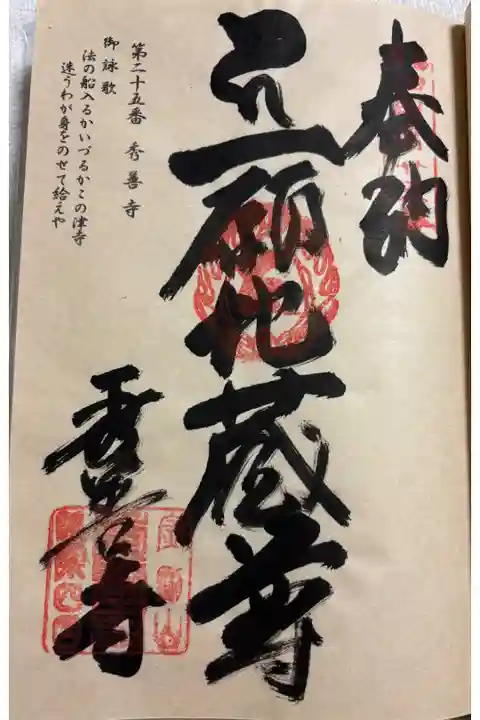 奉納
一願地蔵尊
秀善寺
第二十五番 秀善寺
御詠歌
法の船入るかいづるかこの津寺
迷うわが身をのせて給えや